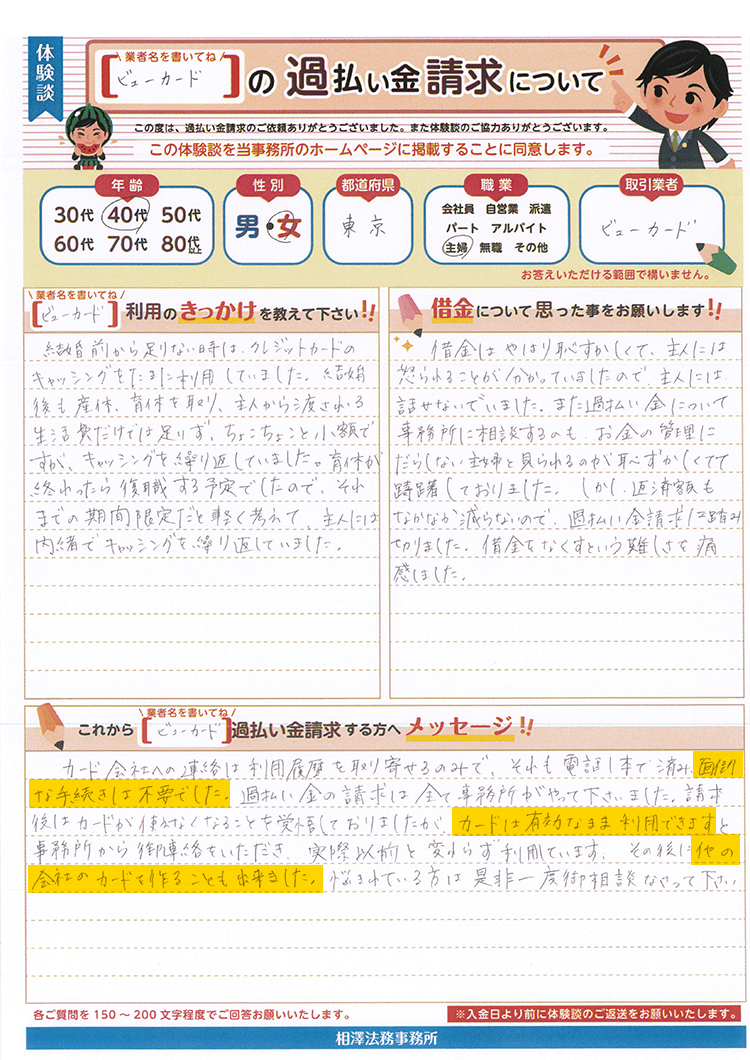 体験談
業者名を書いてね
[ビューカード]の過払い金請求について
この度は、過払い金請求のご依頼ありがとうございました。また体験談のご協力ありがとうございます。
この体験談を当事務所のホームページに掲載することに同意します。
年齢
30代 40代 50代
60代 70代 80代以上
性別
男・女
都道府県
東京
職業
会社員 自営業 派遣
パート アルバイト
主婦 無職 その他
取引業者
ビューカード
お答えいただける範囲で構いません。
業者名を書いてね
[ビューカード]利用のきっかけを教えて下さい!!
結婚前から足りない時は、クレジットカードの
キャッシングをたまに利用していました。結婚
後も産休、育休を取り、主人から渡される
生活費だけでは足りず、ちょこちょこと小額で
すが、キャッシングを繰り返していました。育休が
終わったら復職する予定でしたので、それ
までの期間限定だと軽く考えて、主人には
内緒でキャッシングを繰り返していました。
借金について思った事をお願いします!!
借金はやはり恥ずかしくて、主人には
怒られることが分かっていましたので、主人には
話せないでいました。また過払い金について
事務所に相談するのも、お金の管理に
だらしない主婦と見られるのが恥ずかしくてて
躊躇しておりました。しかし、返済額も
なかなか減らないので、過払い金請求に踏み
切りました。借金をなくすという難しさを痛
感しました。
業者名を書いてね
これから[ビューカード]過払い金請求する方へメッセージ!!
カード会社への連絡は利用履歴を取り寄せるのみで、それも電話1本で済み、面倒
な手続きは不要でした。過払い金の請求は全て事務所がやって下さいました。請求
後はカードが使えなくなることを覚悟しておりましたが、カードは有効なまま利用できますと
事務所から御連絡をいただき、実際以前と変わらず利用しています。その後に他の
会社のカードを作ることも出来ました。悩まれている方は是非一度御相談なさって下さい
各ご質問を150～200文字程度でご回答お願いいたします。
※入金日より前に体験談のご返送をお願いいたします。
相澤法務事務所